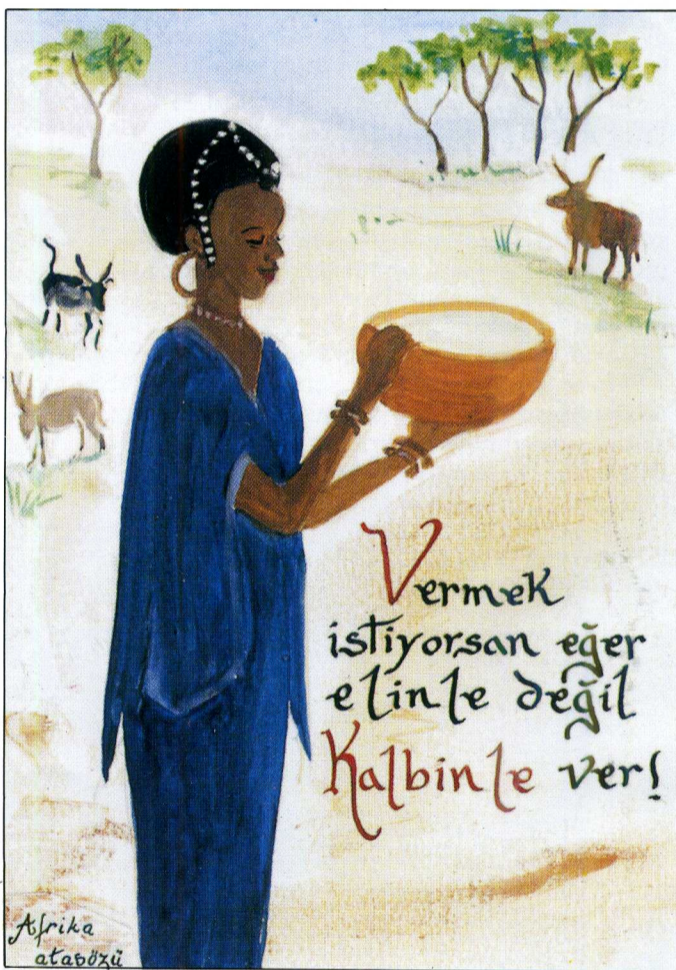 Vermek
istiyorsan eğer
elinle değil
Kalbinle ver!
Afrika
atasözü